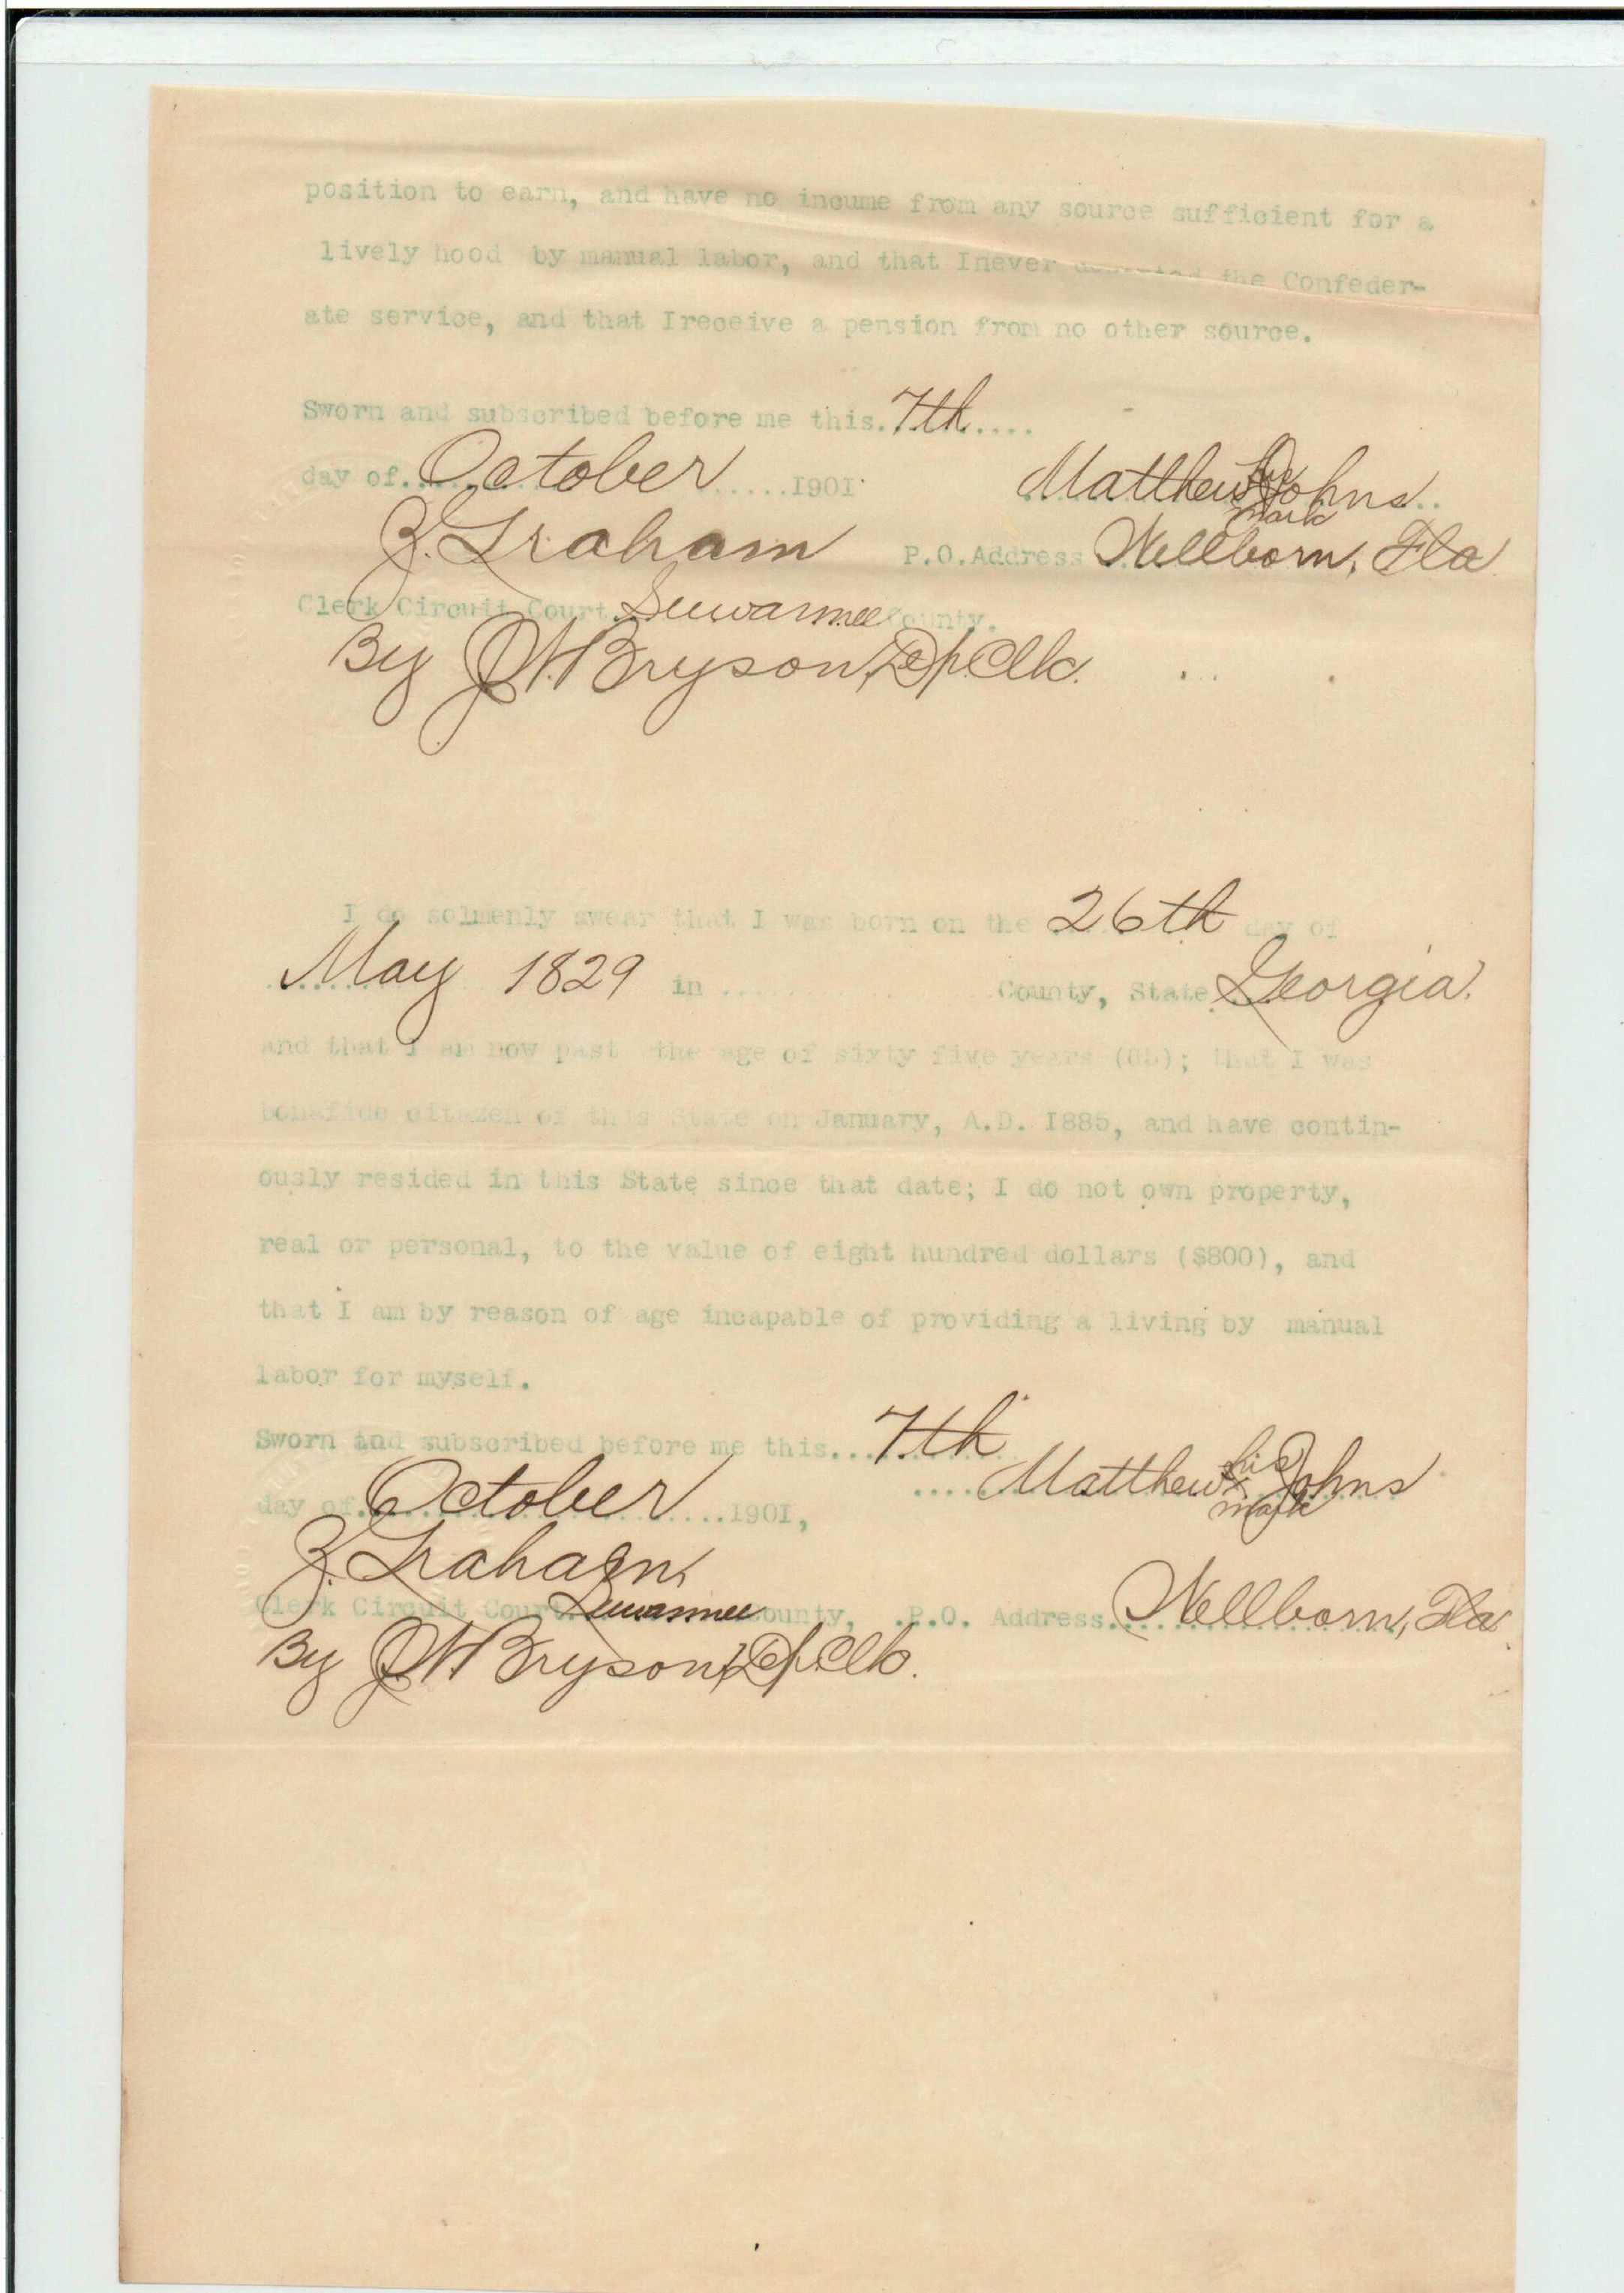 position to earn, and have no incume from any source sufficient for a
lively hood by manual labor, and that Inever deserted the Confeder-
ate service, and that Ireceive a pension from no other source.
Sworn and subscribed before me this. 7th....
day of.. October .....1901
Matthew his Johns..
mark
Z. Graham P.O.Address Wellborn, Fla
Clerk Circuit Court. Suwannee County.
By J.W. Bryson, Dp. Clk.
I do solmenly swear that I was born on the 26th day of
May 1829 in .. County, State Georgia.
and that I am now past the age of sixty five years (65); that I was
bonafide citazen of this State on January, A.D. 1885, and have contin-
ously resided in this State since that date; I do not own property,
real or personal, to the value of eight hundred dollars ($800), and
that I am by reason of age incapable of providing a living by manual
labor for myself.
Sworn and subscribed before me this... 7th
day of. October ....1901,
.... Matthew his x Johns
mark
Z. Graham,
Clerk Circuit Court. Suwannee County, .P.O. Address. Wellborn, Fla
By J.W. Bryson, Dp. Clk.